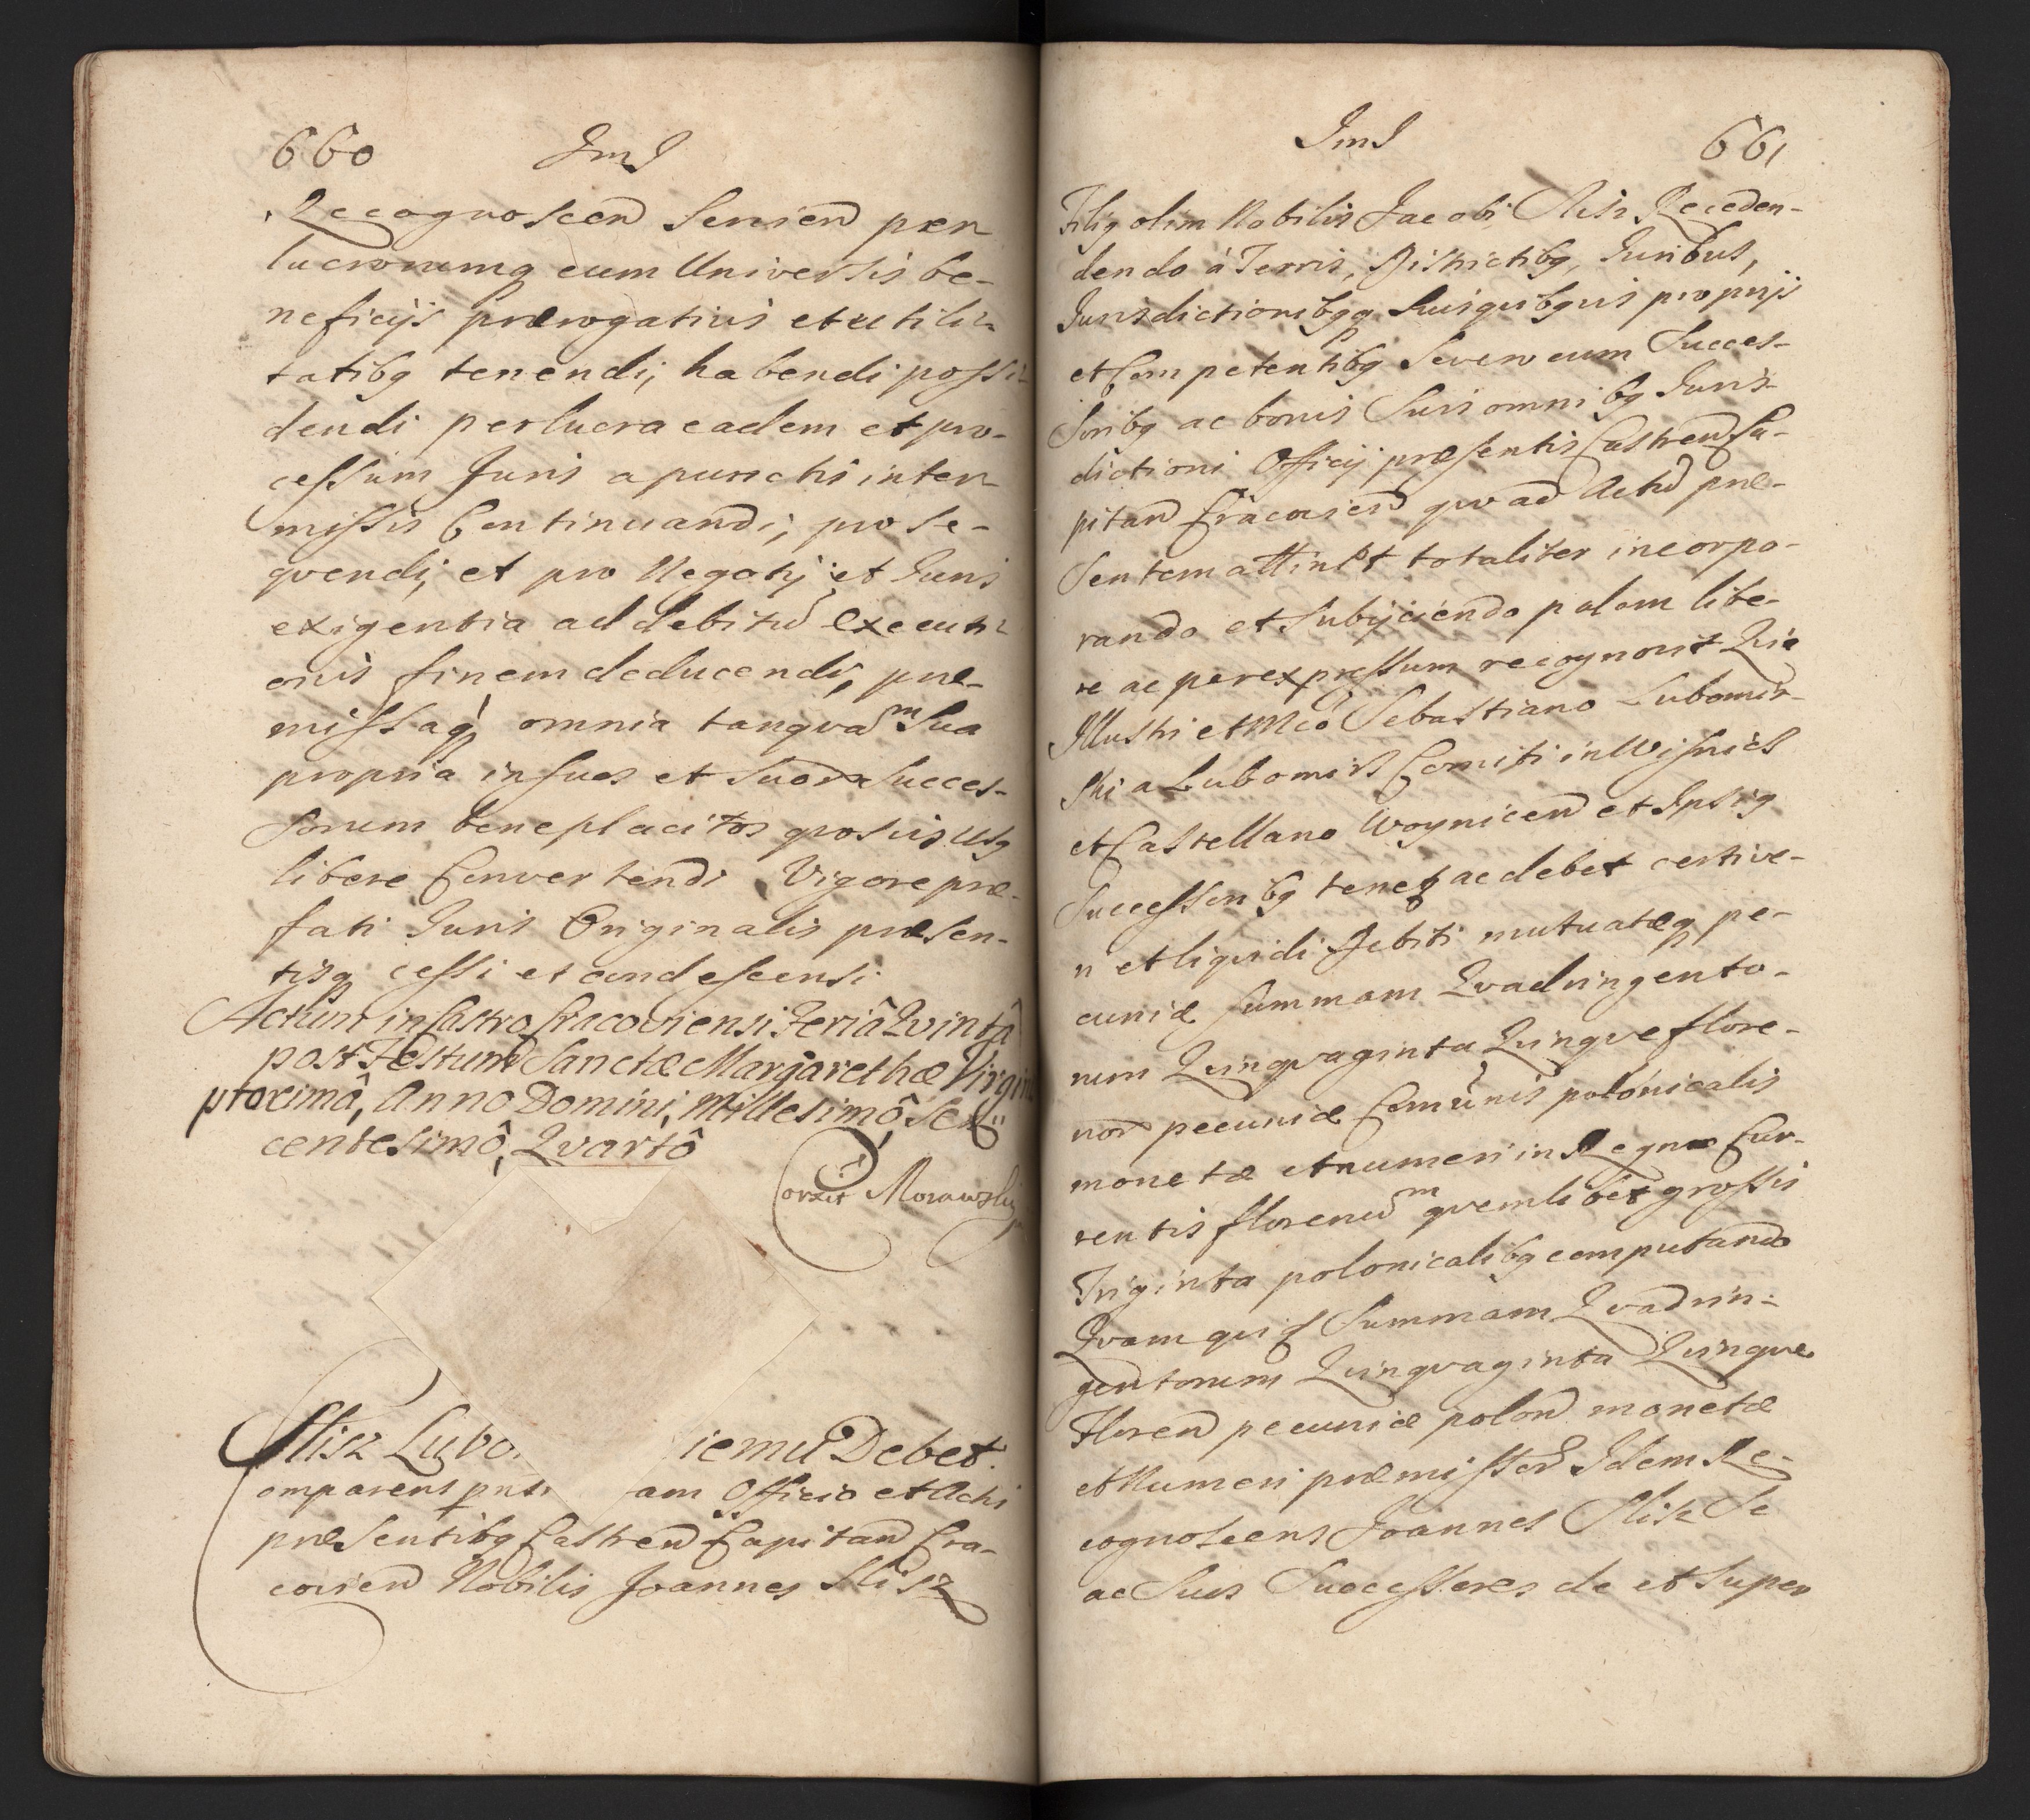 660 JmJ
Recognoscen Servien per
lucrorumq cum Universis be-
neficijs prærogativis et utili-
tatibq tenendi, habendi possi-
dendi per lucra eadem et pro-
cessum Juris a punctis inter-
missis Continuandi, prose-
qvendi, et pro Negotij et Juris
exigentia ad debitu Executi-
onis finem deducendi, præ-
missaq omnia tanqva m Sua
propria in suos et suor Succes-
sorum beneplacitos qvosvis usq
libere Convertendi Vigore præ-
fati Juris Originalis præsen-
tisq cessi et condescensi
Actum in Castro Cracoviensi Feriâ Qvintâ
post Festum Sanctæ Margarethæ Virgin
proximâ, Anno Domini, Millesimô Sex-
centesimô, Qvartô
Corxit Morawsky
Slisz Lubo iemu Debet.
omparens pns am Officio et Actis
præsentibq Castren Capitan Cra-
covien Nobilis Joannes Slisz
JmJ 661
Filiq olim Nobilis Jacobi Slisz Receden-
dendo á Terris, Districtibq, Juribus,
Jurisdictionibqq Suis qvibqvis proprijs
et Competentibq Severo cum Succes-
soribq ac bonis Suis omnibq Juris-
dictioni Officij præsentis Castren Ca-
pitan Cracovien qvoad Actu præ-
sentem attinet totaliter incorpo-
rando et Subijciendo palam libe-
re ac per expressum recognovit Qvia
Illustri et Mco Sebastiano Lubomir-
ski a Lubomirz Comiti in Wisnicz
et Castellano Woynicen et Ipsiq
Successoribq tenetq ac debet certi ve-
ri et liqvidi Debiti mutuatæq pe-
cuniæ Summam Qvadringento-
rum Qvinqvaginta Qvinqve flore-
nor pecuniæ Comunis polonicalis
monetæ et numeri in Regno Cur-
rentis florenu m qvemlibet grossis
Triginta polonicalibq computando
Qvam qvi Summam Qvadrin-
gentorum Qvinqvaginta Qvinqve
Floren pecuniæ polon monetæ
et Numeri præmissor Idem Re-
cognoscens Joannes Slisz Se
ac Suos Successores de et super